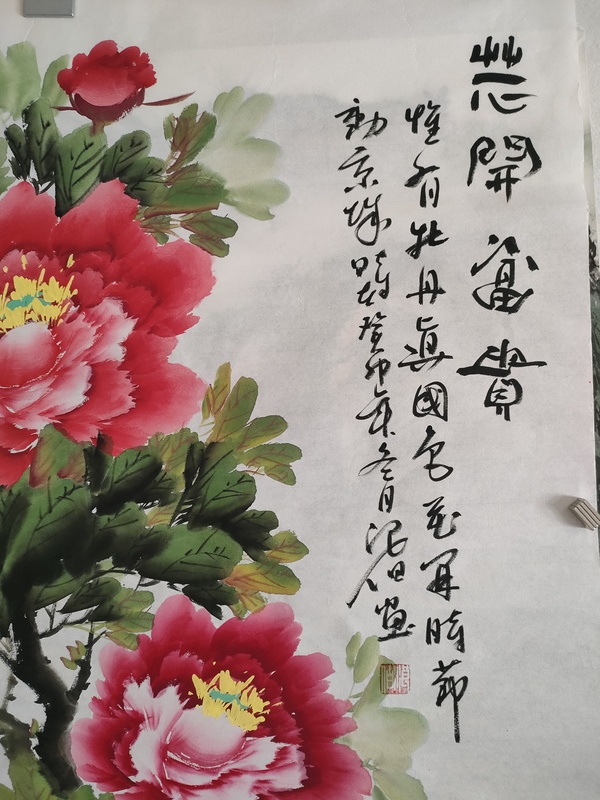 花開富貴
惟有牡丹眞國色花開時節
動京城時在癸卯年冬月畫